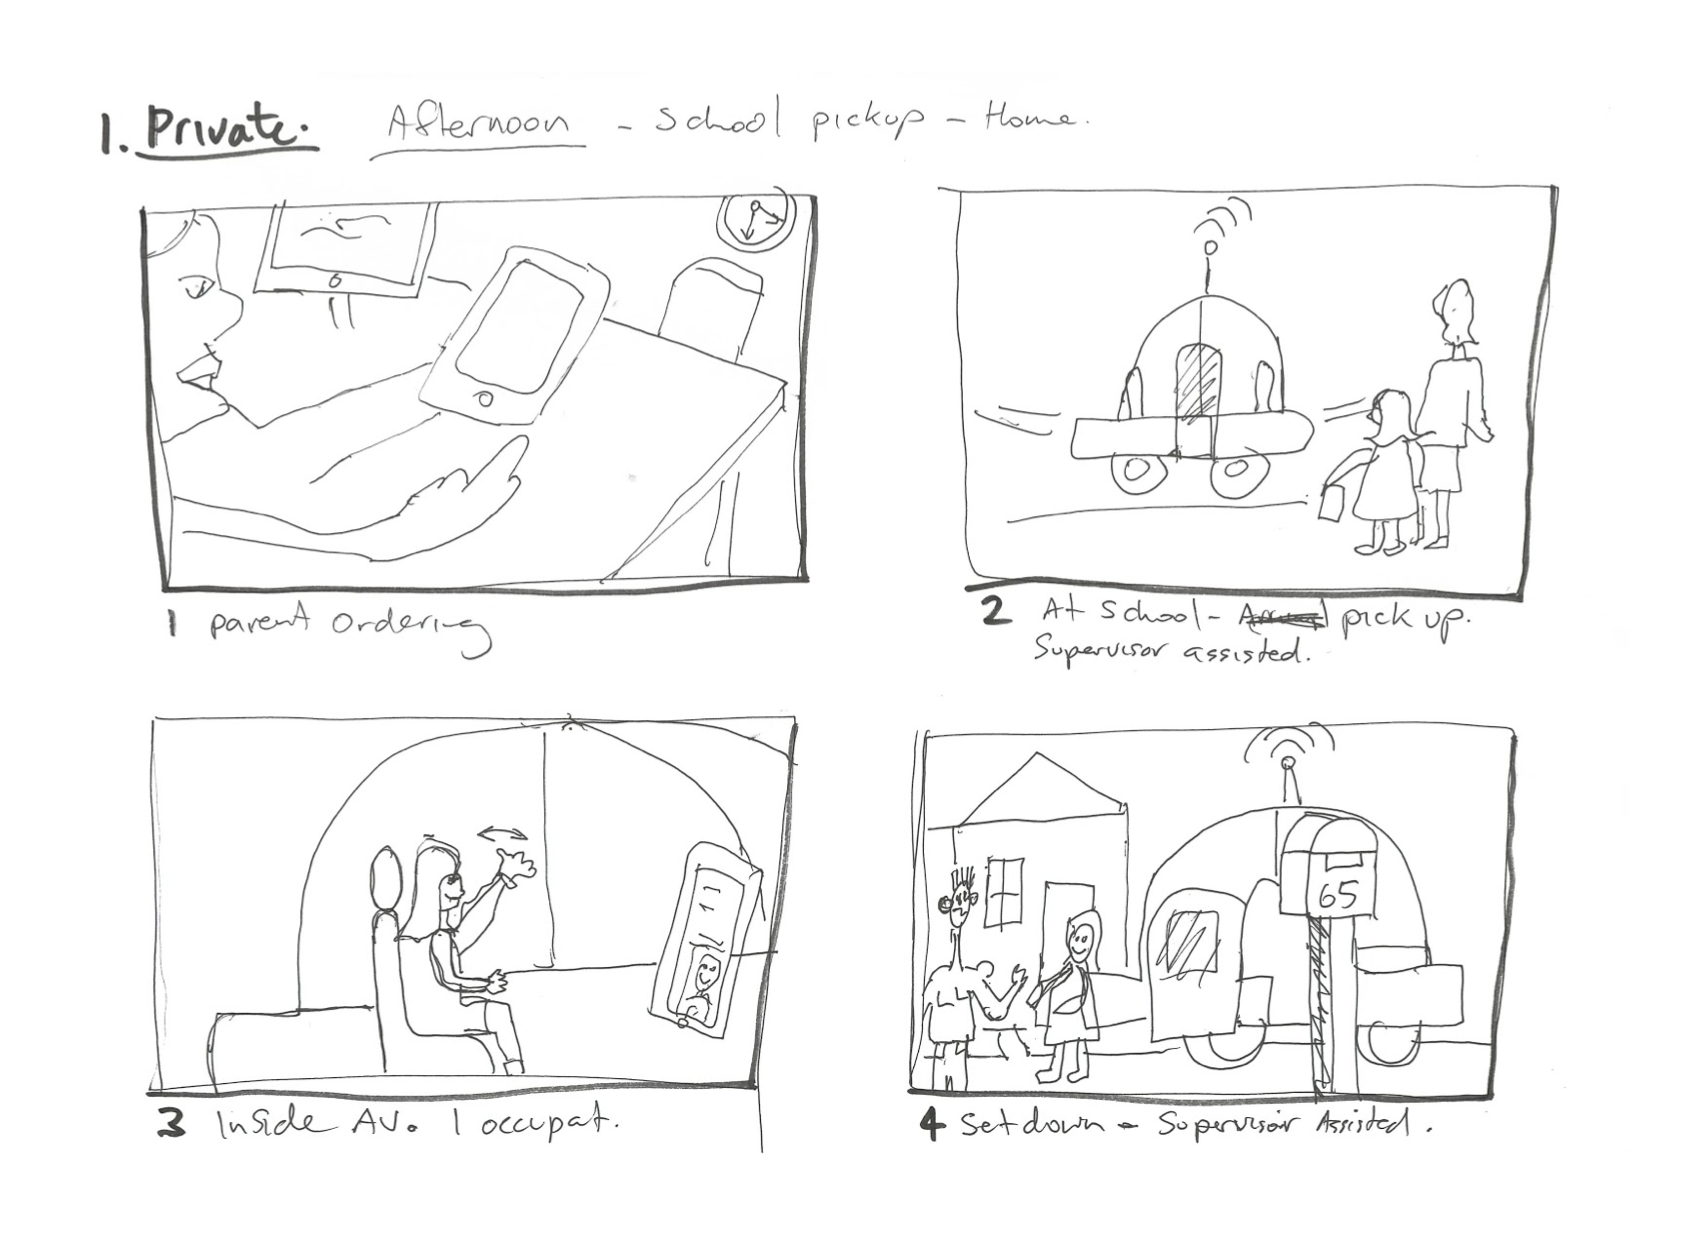 1. Private. Afternoon - School pickup - Home.
1 parent ordering
2 At School - pick up.
Supervisor assisted.
3 Inside AV. 1 occupat.
65
4 Set down - Supervisor Assisted.